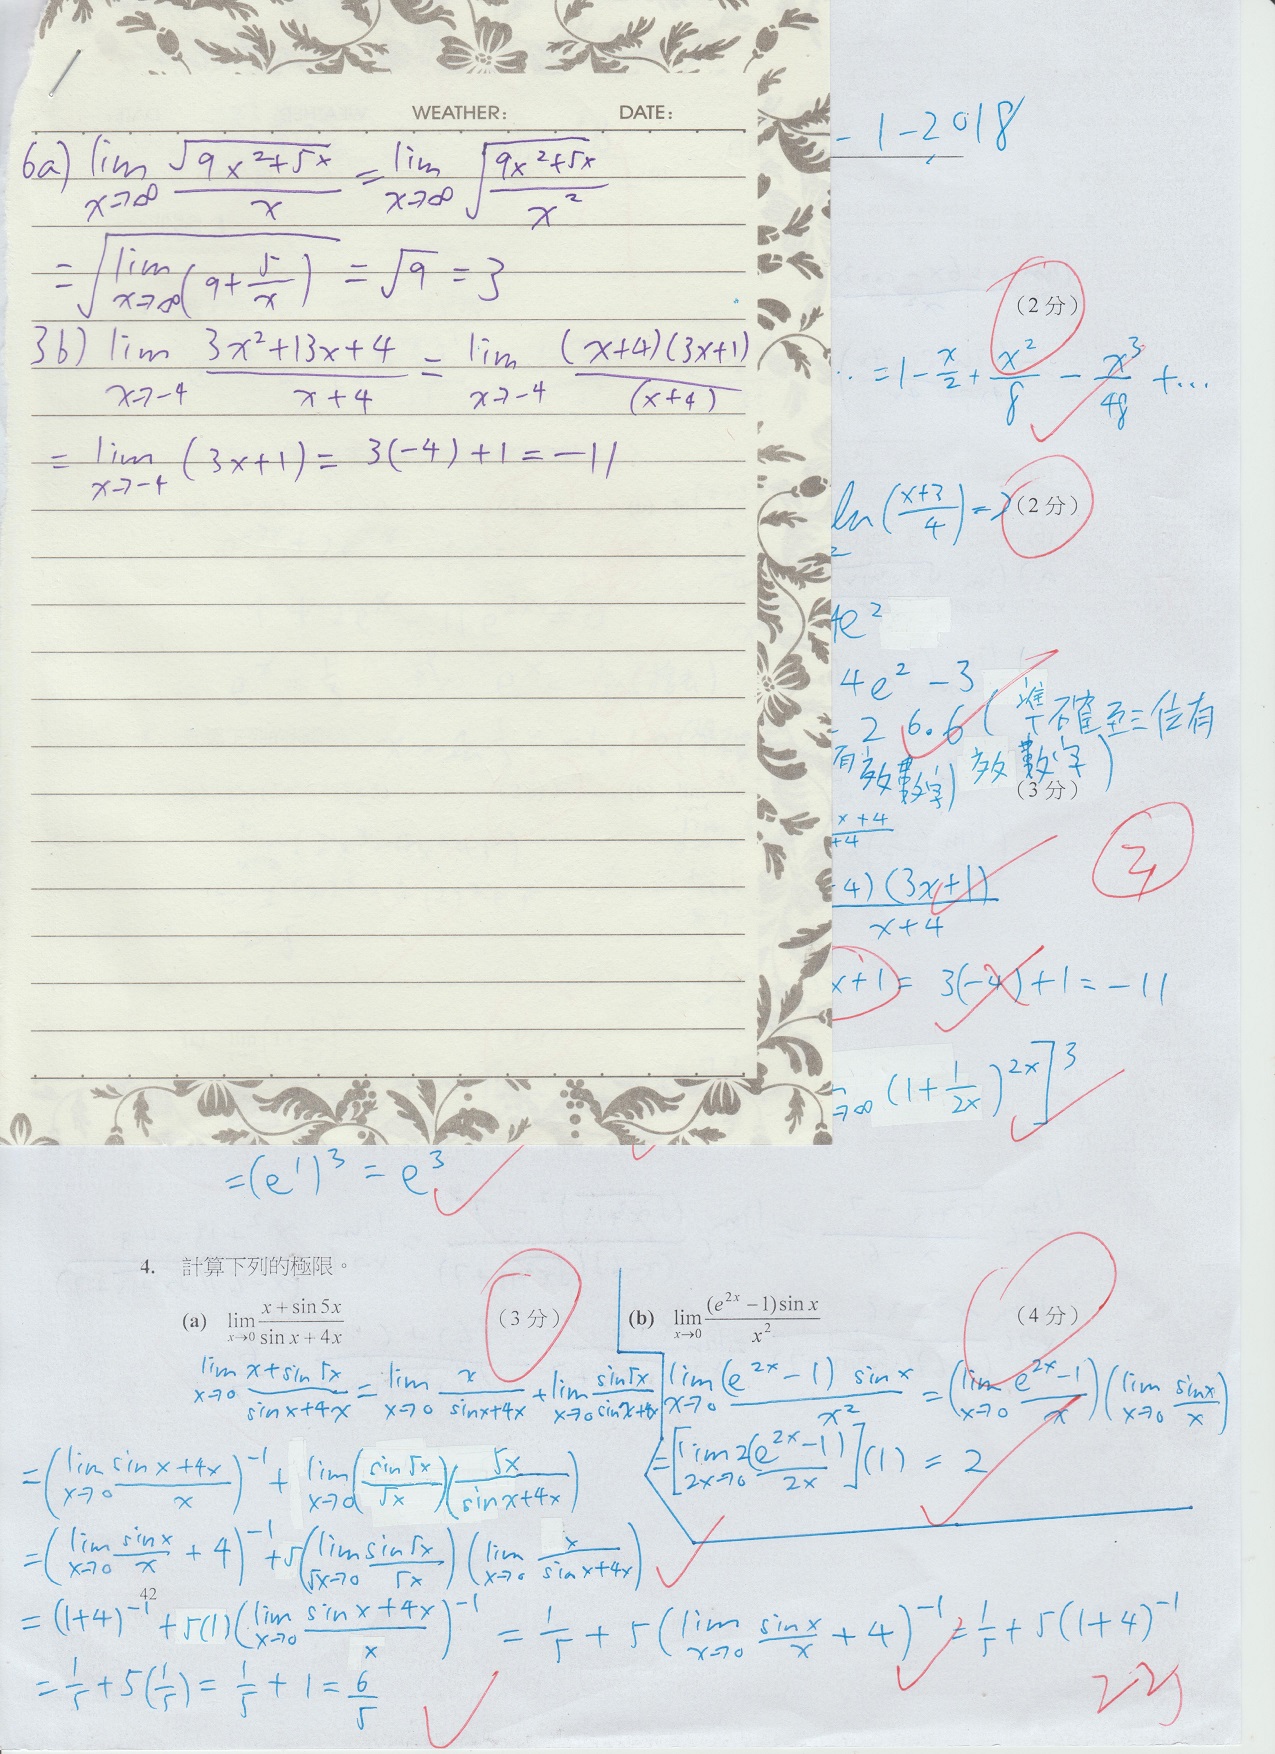 WEATHER: DATE:
6a) lim x→∞ √(9x²+5x)/x = lim x→∞ √((9x²+5x)/x²)
= √(lim x→∞ (9+5/x)) = √9 = 3
3b) lim x→-4 (3x²+13x+4)/(x+4) = lim x→-4 (x+4)(3x+1)/(x+4)
= lim x→-4 (3x+1) = 3(-4)+1 = -11
-1-2018
(2 分)
... = 1 - x/2 + x²/8 - x³/48 + ...
ln((x+3)/4) = 2 (2 分)
4e²
4e² - 3
26.6 (準確至三位有效數字)
有效數字)
(3 分)
x+4
+4
3
4)(3x+1)/(x+4)
x+1 = 3(-4)+1 = -11
→∞ (1+1/2x)^2x]³
= (e¹)³ = e³
4. 計算下列的極限。
(a) lim x→0 (x+sin5x)/(sin x+4x) (3 分) (b) lim x→0 (e^2x −1)sin x/x² (4 分)
lim x→0 (x+sin5x)/(sinx+4x) = lim x→0 x/(sinx+4x) + lim x→0 sin5x/(sinx+4x)
= (lim x→0 (sinx+4x)/x)^-1 + lim x→0 (sin5x/5x)(5x/(sinx+4x))
= (lim x→0 sinx/x + 4)^-1 + 5(lim 5x→0 sin5x/5x)(lim x→0 x/(sinx+4x))
lim x→0 (e^2x -1) sinx/x² = (lim x→0 (e^2x -1)/x)(lim x→0 sinx/x)
= [lim 2x→0 2(e^2x -1)/2x](1) = 2
42
= (1+4)^-1 + 5(1)(lim x→0 (sinx+4x)/x)^-1 = 1/5 + 5(lim x→0 sinx/x + 4)^-1 = 1/5 + 5(1+4)^-1
= 1/5 + 5(1/5) = 1/5 + 1 = 6/5